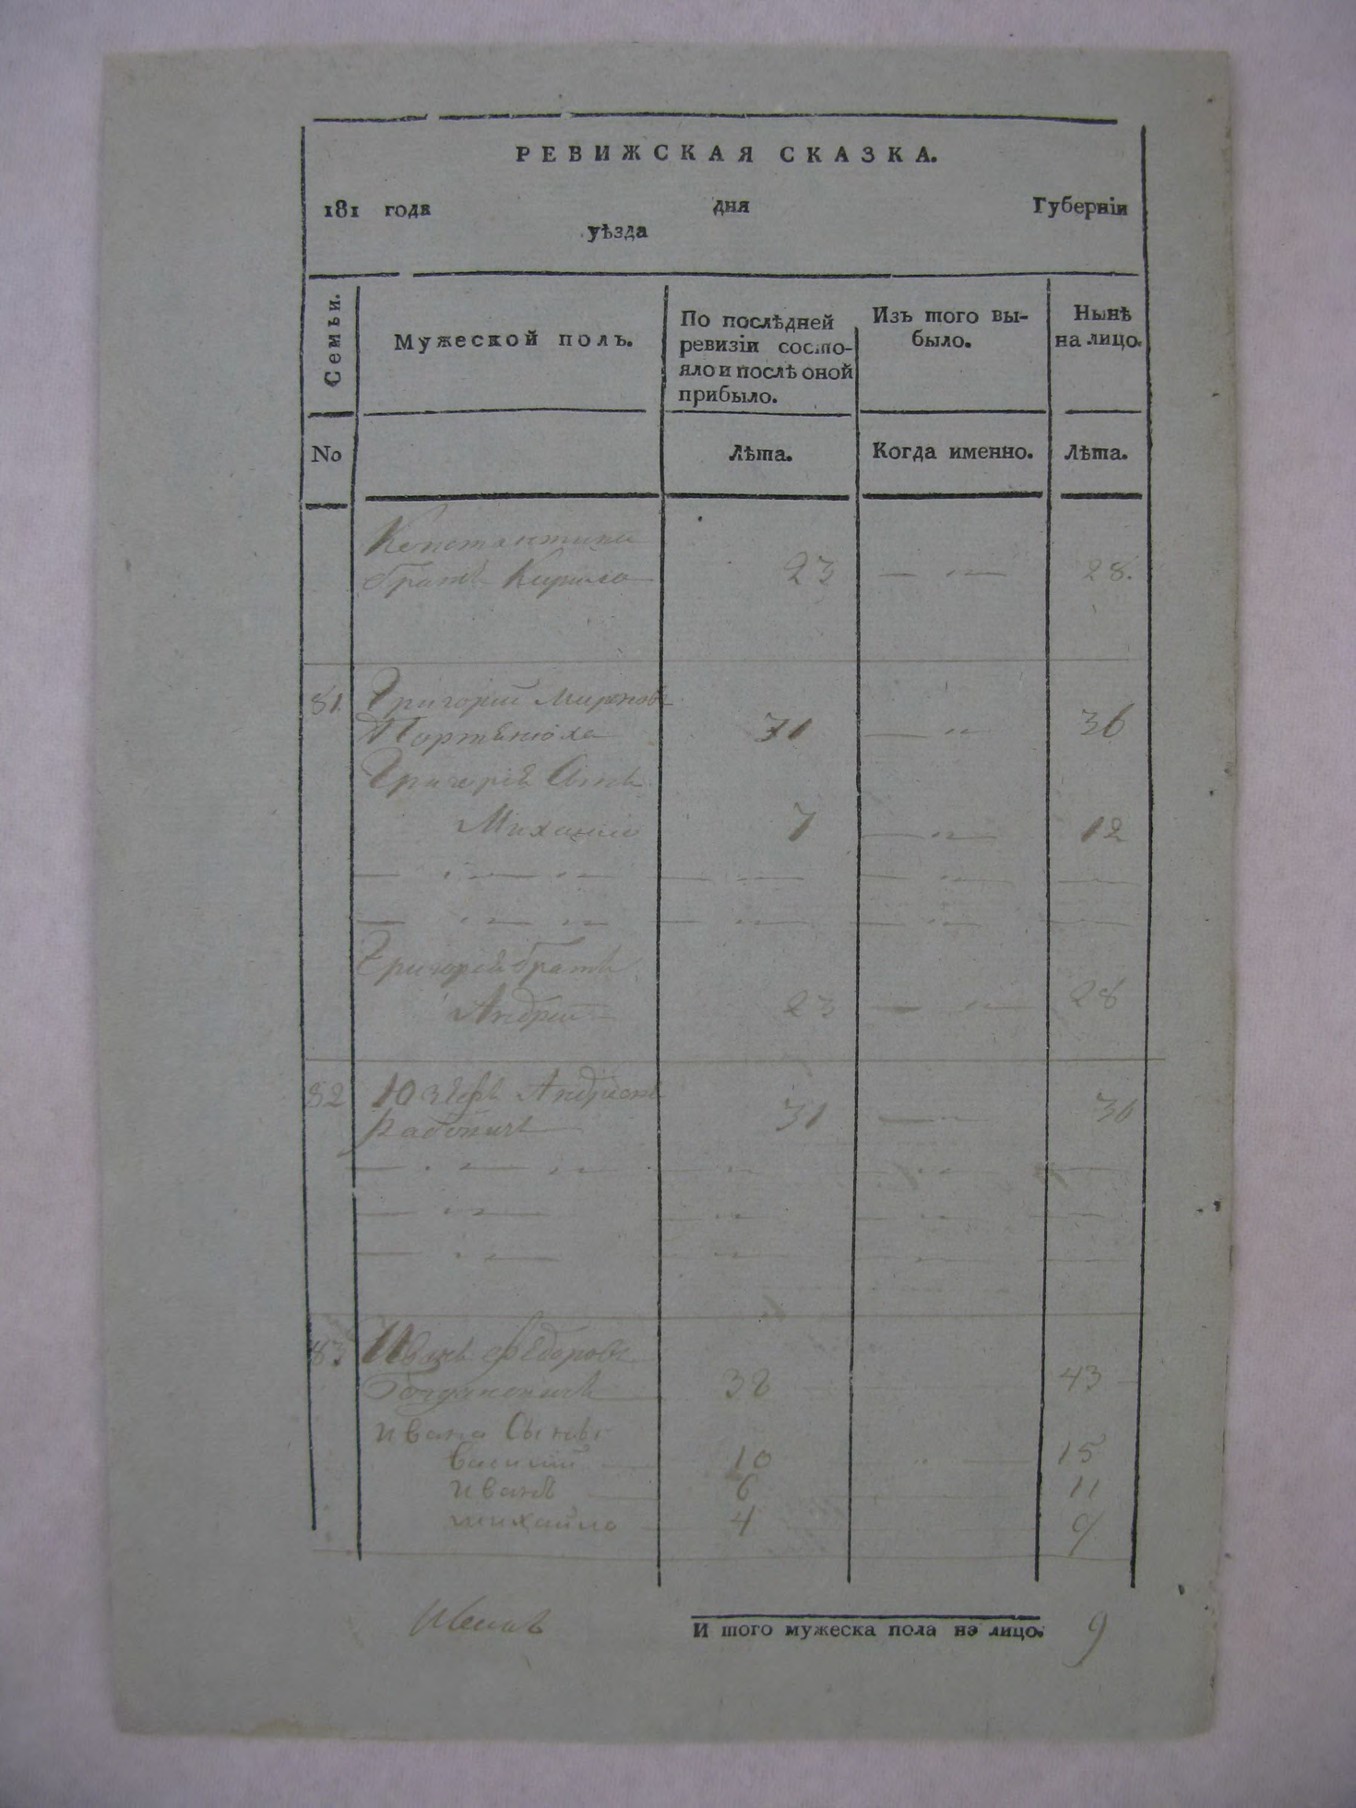 РЕВИЖСКАЯ СКАЗКА.
181 года дня Губерніи
уѣзда
Семьи.
Мужеской полъ.
По послѣдней ревизіи состо-яло и послѣ оной прибыло.
Изъ того вы-было.
Нынѣ на лицо.
No
Лѣта.
Когда именно.
Лѣта.
Константина
братъ Кирило 23 — „ — 28.
81 Григорій Мироновъ
31 — „ 36
Григорія Сынъ
Михаило 7 — „ — 12
— „ — „ — — — — „ — —
— „ — „ — — „ — — „ — —
Григорія братъ
Андрей 23 — „ — 28
82 Юзефъ Андреевъ
31 — 36
83 Иванъ Федоровъ
Богдановичъ 38 43
Ивана Сыновья
Василий 10 15
Иванъ 6 11
Михайло 4 9
И того мужеска пола на лицо. 9